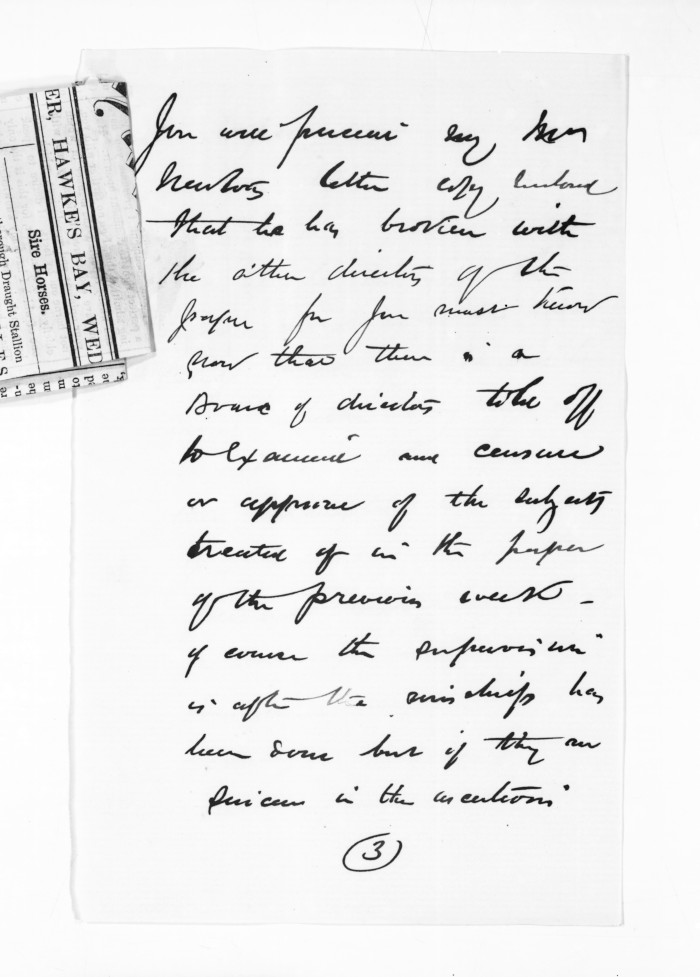 ER, HAWKE'S BAY, WED
Sire Horses.
rough Draught Stallion
You will perceive by
Newton's letter copy enclosed
that he has broken with
the other directors of the
paper for you must know
now that there is a
Board of directors to be off
to Examine and censure
or approve of the subjects
treated of in the paper
of the previous week -
of course the supervision
is after the mischief has
been done but if they are
sincere in the assertions
(3)